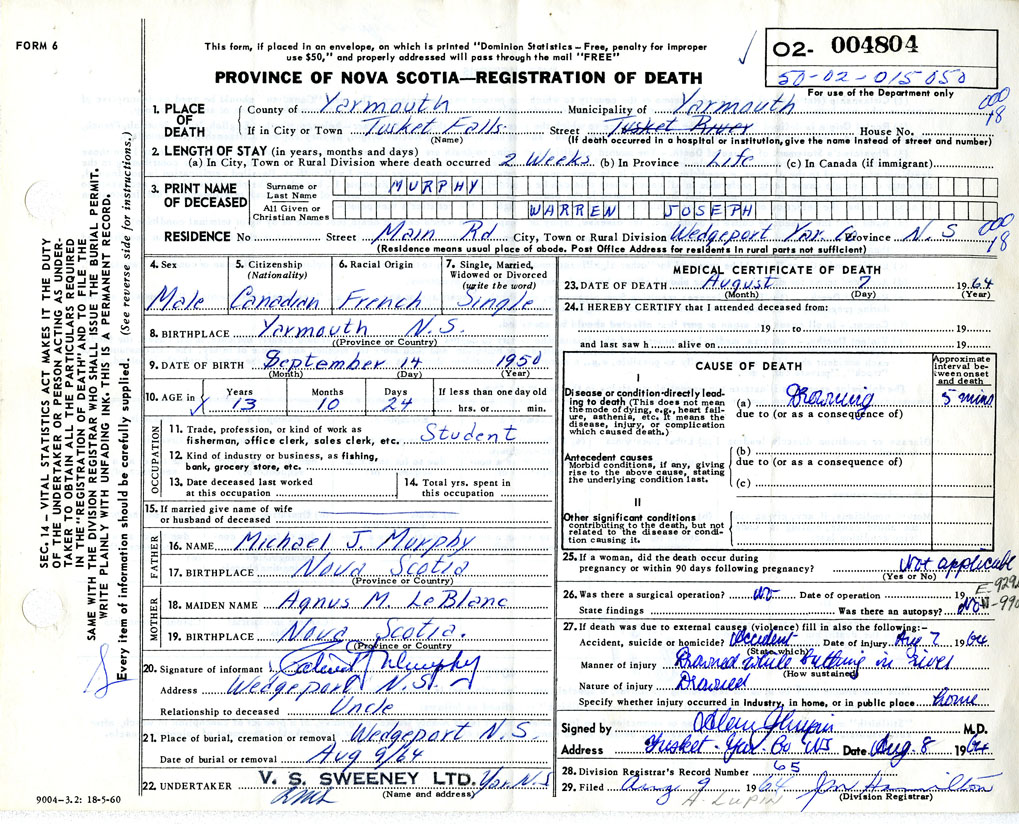 FORM 6
This form, if placed in an envelope, on which is printed "Dominion Statistics – Free, penalty for improper
use $50," and properly addressed will pass through the mail "FREE"
PROVINCE OF NOVA SCOTIA—REGISTRATION OF DEATH
O2- 004804
50-02-015050
For use of the Department only
000
18
1. PLACE OF DEATH
County of Yarmouth Municipality of Yarmouth
If in City or Town Tusket Falls Street Tusket River House No.
(Name) (If death occurred in a hospital or institution, give the name instead of street and number)
2. LENGTH OF STAY (in years, months and days)
(a) In City, Town or Rural Division where death occurred 2 Weeks (b) In Province Life (c) In Canada (if immigrant)
3. PRINT NAME OF DECEASED
Surname or Last Name MURPHY
All Given or Christian Names WARREN JOSEPH
RESIDENCE No Street Main Rd City, Town or Rural Division Wedgeport Yar. Co Province N.S
000
18
(Residence means usual place of abode. Post Office Address for residents in rural parts not sufficient)
4. Sex Male
5. Citizenship (Nationality) Canadian
6. Racial Origin French
7. Single, Married, Widowed or Divorced (write the word) Single
8. BIRTHPLACE Yarmouth N.S.
((Province or Country)
9. DATE OF BIRTH September 14 1950
(Month) (Day) (Year)
10. AGE in Years 13 Months 10 Days 24 If less than one day old hrs. or min.
OCCUPATION
11. Trade, profession, or kind of work as
fisherman, office clerk, sales clerk, etc. Student
12. Kind of industry or business, as fishing,
bank, grocery store, etc.
13. Date deceased last worked
at this occupation
14. Total yrs. spent in
this occupation
15. If married give name of wife
or husband of deceased
FATHER
16. NAME Michael J. Murphy
17. BIRTHPLACE Nova Scotia
(Province or Country)
MOTHER
18. MAIDEN NAME Agnus M. LeBlanc
19. BIRTHPLACE Nova Scotia.
(Province or Country
20. Signature of informant Murphy
Address Wedgeport N.S.
Relationship to deceased Uncle
21. Place of burial, cremation or removal Wedgeport N.S.
Date of burial or removal Aug 9/64
22. UNDERTAKER V. S. SWEENEY LTD. Yar. N.S
(Name and address)
9004-3.2: 18-5-60
MEDICAL CERTIFICATE OF DEATH
23. DATE OF DEATH August 7 1964
(Month) (Day) (Year)
24. I HEREBY CERTIFY that I attended deceased from:
19 to 19
and last saw h alive on 19
CAUSE OF DEATH
Approximate interval between onset and death
I
Disease or condition directly leading to death (This does not mean
the mode of dying, e.g., heart failure, asthenia, etc. It means the
disease, injury, or complication
which caused death.)
(a) Drowning 5 mins
due to (or as a consequence of)
Antecedent causes
Morbid conditions, if any, giving
rise to the above cause, stating
the underlying condition last.
(b)
due to (or as a consequence of)
(c)
II
Other significant conditions
contributing to the death, but not
related to the disease or condition causing it.
25. If a woman, did the death occur during
pregnancy or within 90 days following pregnancy? Not applicable
(Yes or No)
26. Was there a surgical operation? No Date of operation 19
E-929
N-990
State findings Was there an autopsy? No
27. If death was due to external causes (violence) fill in also the following:-
Accident, suicide or homicide? Accident Date of injury Aug 7 1964
(State which)
Manner of injury Drowned while bathing in river
(How sustained)
Nature of injury Drowned
Specify whether injury occurred in Industry, in home, or in public place home
Signed by M.D.
Address Tusket - Yar. Co NS Date Aug. 8 1964
28. Division Registrar's Record Number 65
29. Filed Aug 9 1964 Hamilton
A. LUPIN (Division Registrar)
SEC. 14 – VITAL STATISTICS ACT MAKES IT THE DUTY
OF THE UNDERTAKER OR PERSON ACTING AS UNDER-
TAKER TO OBTAIN ALL THE PARTICULARS REQUIRED
IN THE "REGISTRATION OF DEATH" AND TO FILE THE
SAME WITH THE DIVISION REGISTRAR WHO SHALL ISSUE THE BURIAL PERMIT.
WRITE PLAINLY WITH UNFADING INK. THIS IS A PERMANENT RECORD.
Every item of information should be carefully supplied. (See reverse side for instructions.)